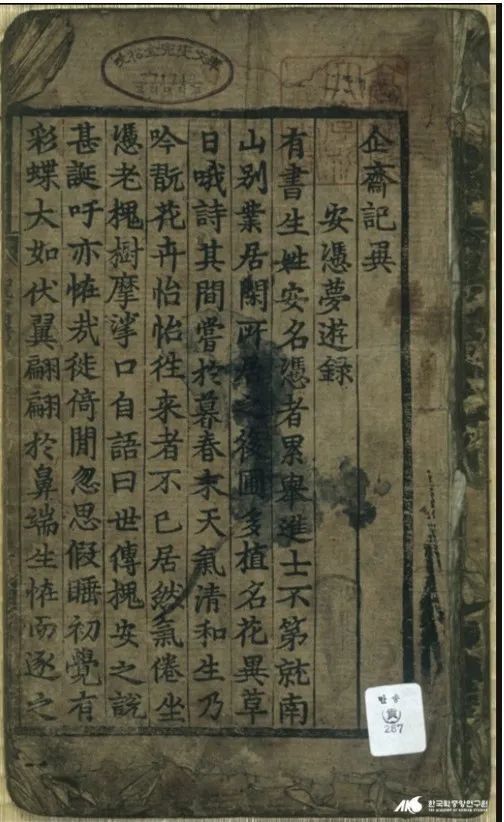 企齋記異
安憑夢遊録
有書生姓安名憑者累舉進士不第就南
山别業居閑所居之後圃多植名花異草
日哦詩其間嘗於暮春末天氣清和生乃
吟翫花卉怡怡徃来者不已居然氣倦坐
憑老槐樹摩挲口自語曰世傳槐安之説
甚誕吁亦恠㢤徙倚間忽思假睡初覺有
彩蝶大如伏翼翩翩於鼻端生恠而逐之
만송
貴
287
한국학중앙연구원
THE ACADEMY OF KOREAN STUDIES